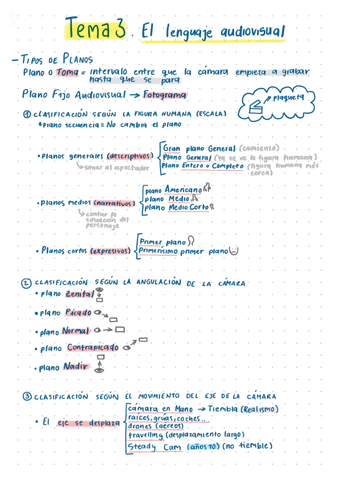 Tema 3. El lenguaje audiovisual
- TIPOS DE PLANOS
Plano o Toma = intervalo entre que la cámara empieza a grabar
hasta que se para
Plano Fijo Audiovisual → Fotograma
plaqueta
① CLASIFICACIÓN SEGÚN LA FIGURA HUMANA (ESCALA)
*Plano secuencia: No cambia el plano
• Planos generales (descriptivos)
↳ situar al espectador
Gran plano General (comienzo)
Plano General (ya se ve la figura humana)
Plano Entero o Completo (figura humana más cerca)
• Planos medios (narrativos)
↳ contar la situación del personaje
plano Americano
plano Medio
plano Medio Corto
• Planos cortos (expresivos)
Primer plano
Primerísimo primer plano
② CLASIFICACIÓN SEGÚN LA ANGULACIÓN DE LA CÁMARA
• plano Zenital
• plano Picado
• plano Normal
• plano Contrapicado
• plano Nadir
③ CLASIFICACIÓN SEGÚN EL MOVIMIENTO DEL EJE DE LA CÁMARA
• El eje se desplaza
cámara en Mano → Tiembla (Realismo)
raíces, grúas, coches...
drones (aéreos)
travelling (desplazamiento largo)
Steady Cam (años 70) (no tiemble)